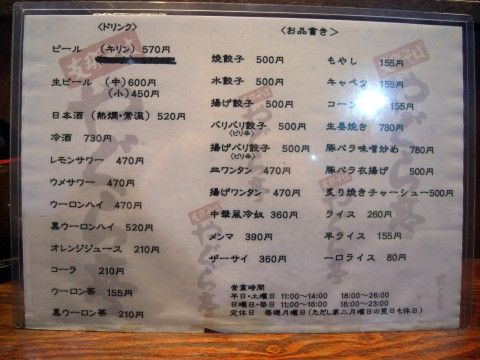 <ドリンク>
ビール (キリン) 570円
生ビール (中) 600円
(小) 450円
日本酒 (熱燗・常温) 520円
冷酒 730円
レモンサワー 470円
ウメサワー 470円
ウーロンハイ 470円
黒ウーロンハイ 520円
オレンジジュース 210円
コーラ 210円
ウーロン茶 155円
黒ウーロン茶 210円
<お品書き>
焼餃子 500円
水餃子 500円
揚げ餃子 500円
パリパリ餃子 500円
(ピリ辛)
揚げパリ餃子 500円
(ピリ辛)
皿ワンタン 470円
揚げワンタン 470円
中華風冷奴 360円
メンマ 390円
ザーサイ 360円
もやし 155円
キャベツ 155円
コーン 155円
生姜焼き 780円
豚バラ味噌炒め 780円
豚バラ衣揚げ 500円
炙り焼きチャーシュー 500円
ライス 260円
半ライス 155円
一口ライス 80円
営業時間
平日・土曜日 11:00〜14:00 18:00〜26:00
日曜日・祭日 11:00〜16:00 18:00〜23:00
定休日 毎週月曜日 (ただし第二月曜日の翌日も休日)